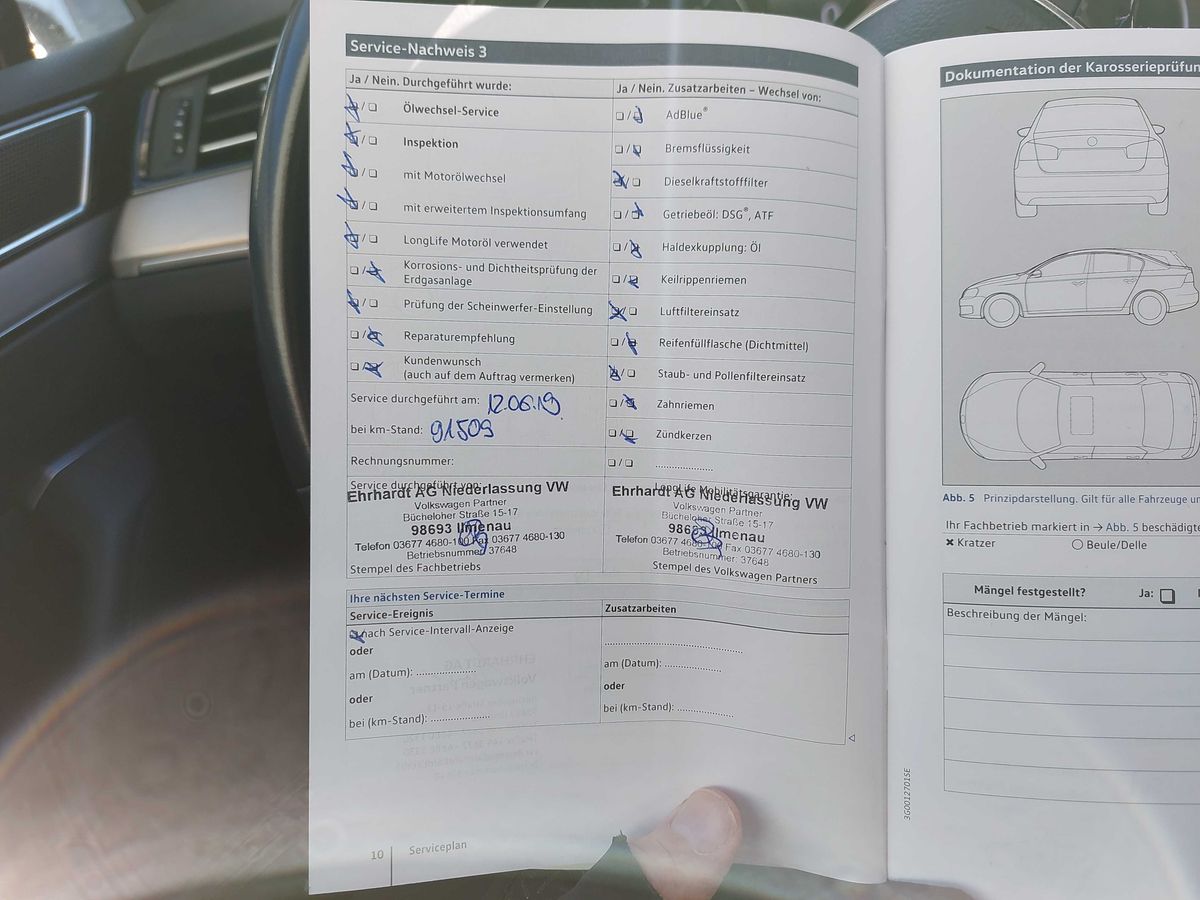 Service-Nachweis 3
Ja / Nein. Durchgeführt wurde:
Ölwechsel-Service
Inspektion
mit Motorölwechsel
mit erweitertem Inspektionsumfang
LongLife Motoröl verwendet
Korrosions- und Dichtheitsprüfung der
Erdgasanlage
Prüfung der Scheinwerfer-Einstellung
Reparaturempfehlung
Kundenwunsch
(auch auf dem Auftrag vermerken)
Service durchgeführt am: 12.06.19
bei km-Stand: 91509
Rechnungsnummer:
Service durchgeführt von:
Ehrhardt AG Niederlassung VW
Volkswagen Partner
Bücheloher Straße 15-17
98693 Ilmenau
Telefon 03677 4680-100 Fax 03677 4680-130
Betriebsnummer: 37648
Stempel des Fachbetriebs
Ja / Nein. Zusatzarbeiten – Wechsel von:
AdBlue®
Bremsflüssigkeit
Dieselkraftstofffilter
Getriebeöl: DSG®, ATF
Haldexkupplung: Öl
Keilrippenriemen
Luftfiltereinsatz
Reifenfüllflasche (Dichtmittel)
Staub- und Pollenfiltereinsatz
Zahnriemen
Zündkerzen
LongLife Mobilitätsgarantie:
Ehrhardt AG Niederlassung VW
Volkswagen Partner
Bücheloher Straße 15-17
98693 Ilmenau
Telefon 03677 4680-100 Fax 03677 4680-130
Betriebsnummer: 37648
Stempel des Volkswagen Partners
Ihre nächsten Service-Termine
Service-Ereignis
nach Service-Intervall-Anzeige
oder
am (Datum): ....................
oder
bei (km-Stand): ....................
Zusatzarbeiten
am (Datum): ....................
oder
bei (km-Stand): ....................
10
Serviceplan
Dokumentation der Karosserieprüfun
Abb. 5 Prinzipdarstellung. Gilt für alle Fahrzeuge un
Ihr Fachbetrieb markiert in → Abb. 5 beschädigte
✖ Kratzer ○ Beule/Delle
Mängel festgestellt? Ja: ❑
Beschreibung der Mängel:
3G0012701SE